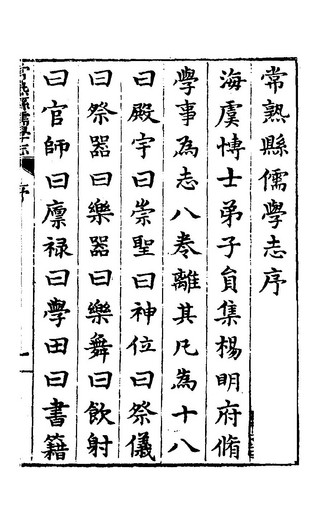 常熟縣儒學志序
海虞博士弟子員集楊明府脩
學事為志八卷離其凡為十八
曰殿宇曰崇聖曰神位曰祭儀
曰祭器曰樂器曰樂舞曰飲射
曰官師曰廪祿曰學田曰書籍
常熟縣儒學志
序